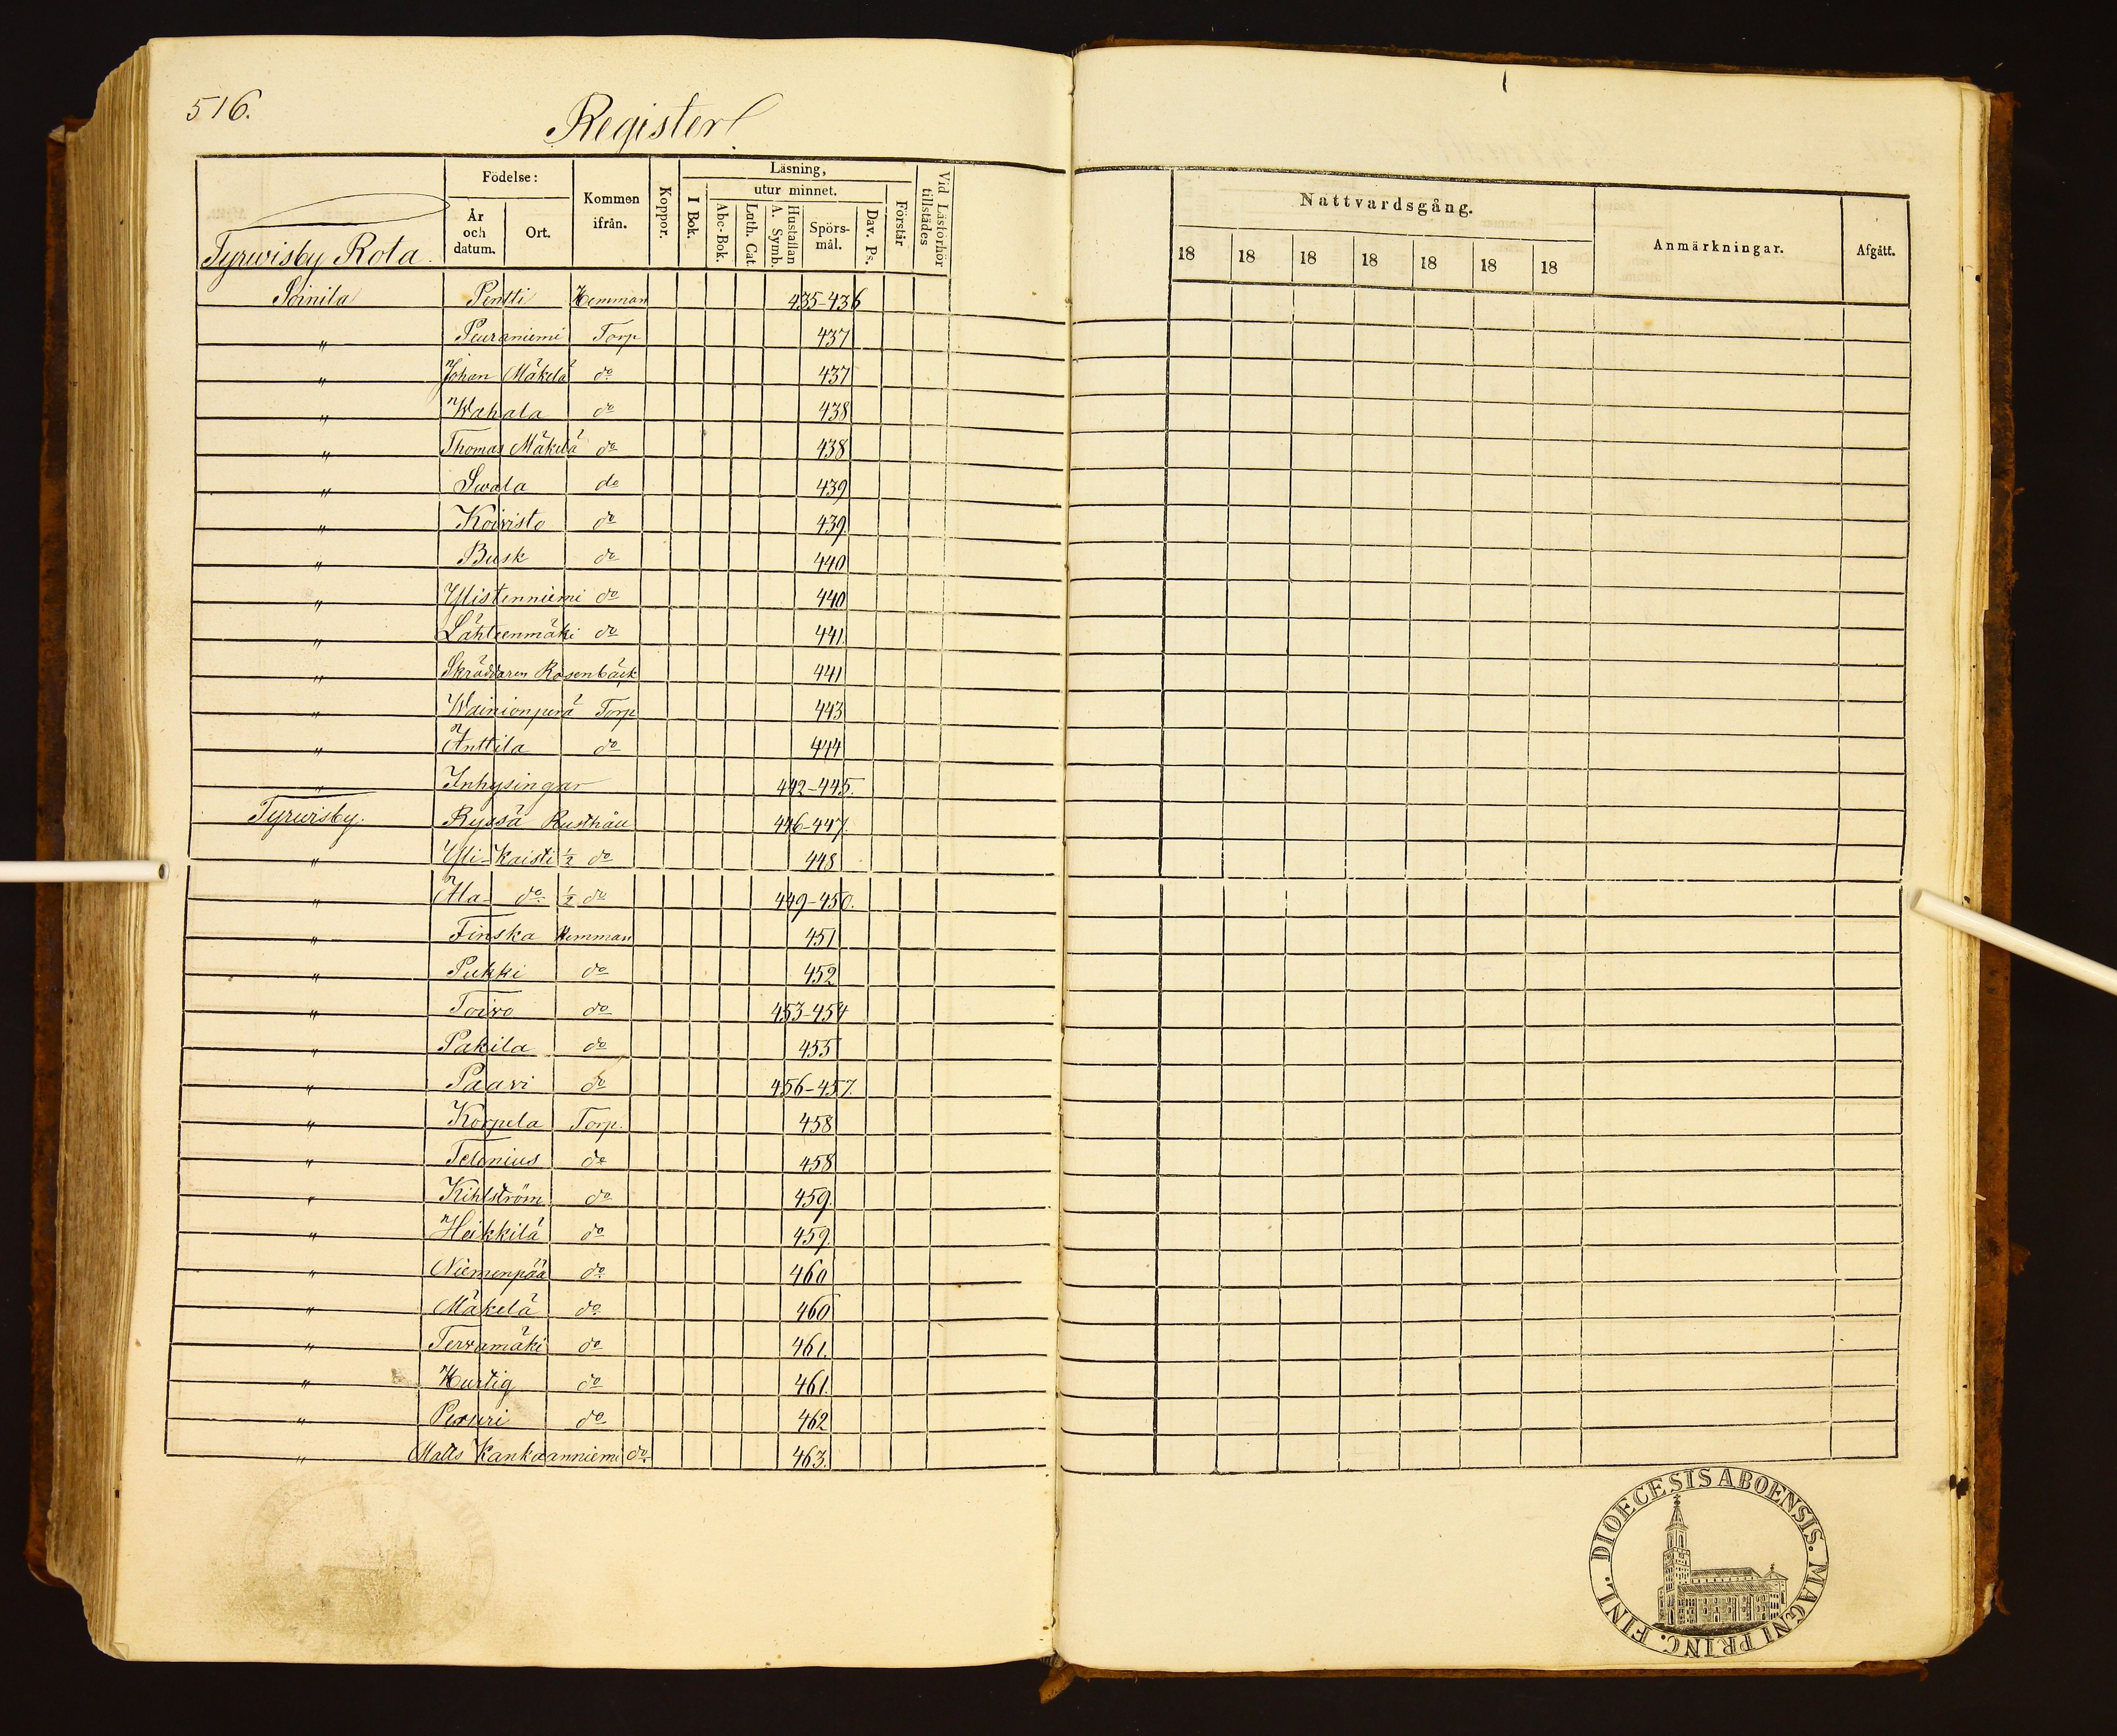 516.
Register
Födelse:
Kommen ifrån.
Koppor.
Läsning,
utur minnet.
Vid Läsförhör tillstädes
År och datum.
Ort.
I Bok.
Abc-Bok.
Luth. Cat.
Hustaflan A. Symb.
Spörs-mål.
Dav. Ps.
Förstår
Tyrwisby Rota.
Soinila Pentti Hemman 435-436
" Peuraniemi Torp 437
" Johan Mäkelä do 437
" Wahala do 438
" Thomas Mäkelä do 438
" Swala do 439
" Koivisto do 439
" Busk do 440
" Ylistenniemi do 440
" Lähteenmäki do 441.
" Skräddaren Rosenbäck 441
" Wainionperä Torp 443
" Anttila do 444
" Inhysingar 442-445.
Tyrwisby. Ryssä Rusthåll 446-447.
" Yli-Kaisti ½ do 448
" Ala- do ½ do 449-450.
" Finska Hemman 451
" Pukki do 452
" Toivo do 453-454
" Pakila do 455
" Paavi do 456-457.
" Korpela Torp. 458
" Telenius do 458
" Kihlström do 459.
" Heikkilä do 459.
" Niemenpää do 460
" Mäkelä do 460
" Tervamäki do 461.
" Hurtig do 461.
" do 462
" Matts Kankaanniemi do 463.
Nattvardsgång.
Anmärkningar.
Afgått.
18 18 18 18 18 18 18
DIOECESIS ABOENSIS. MAGNI PRINC. FINL.